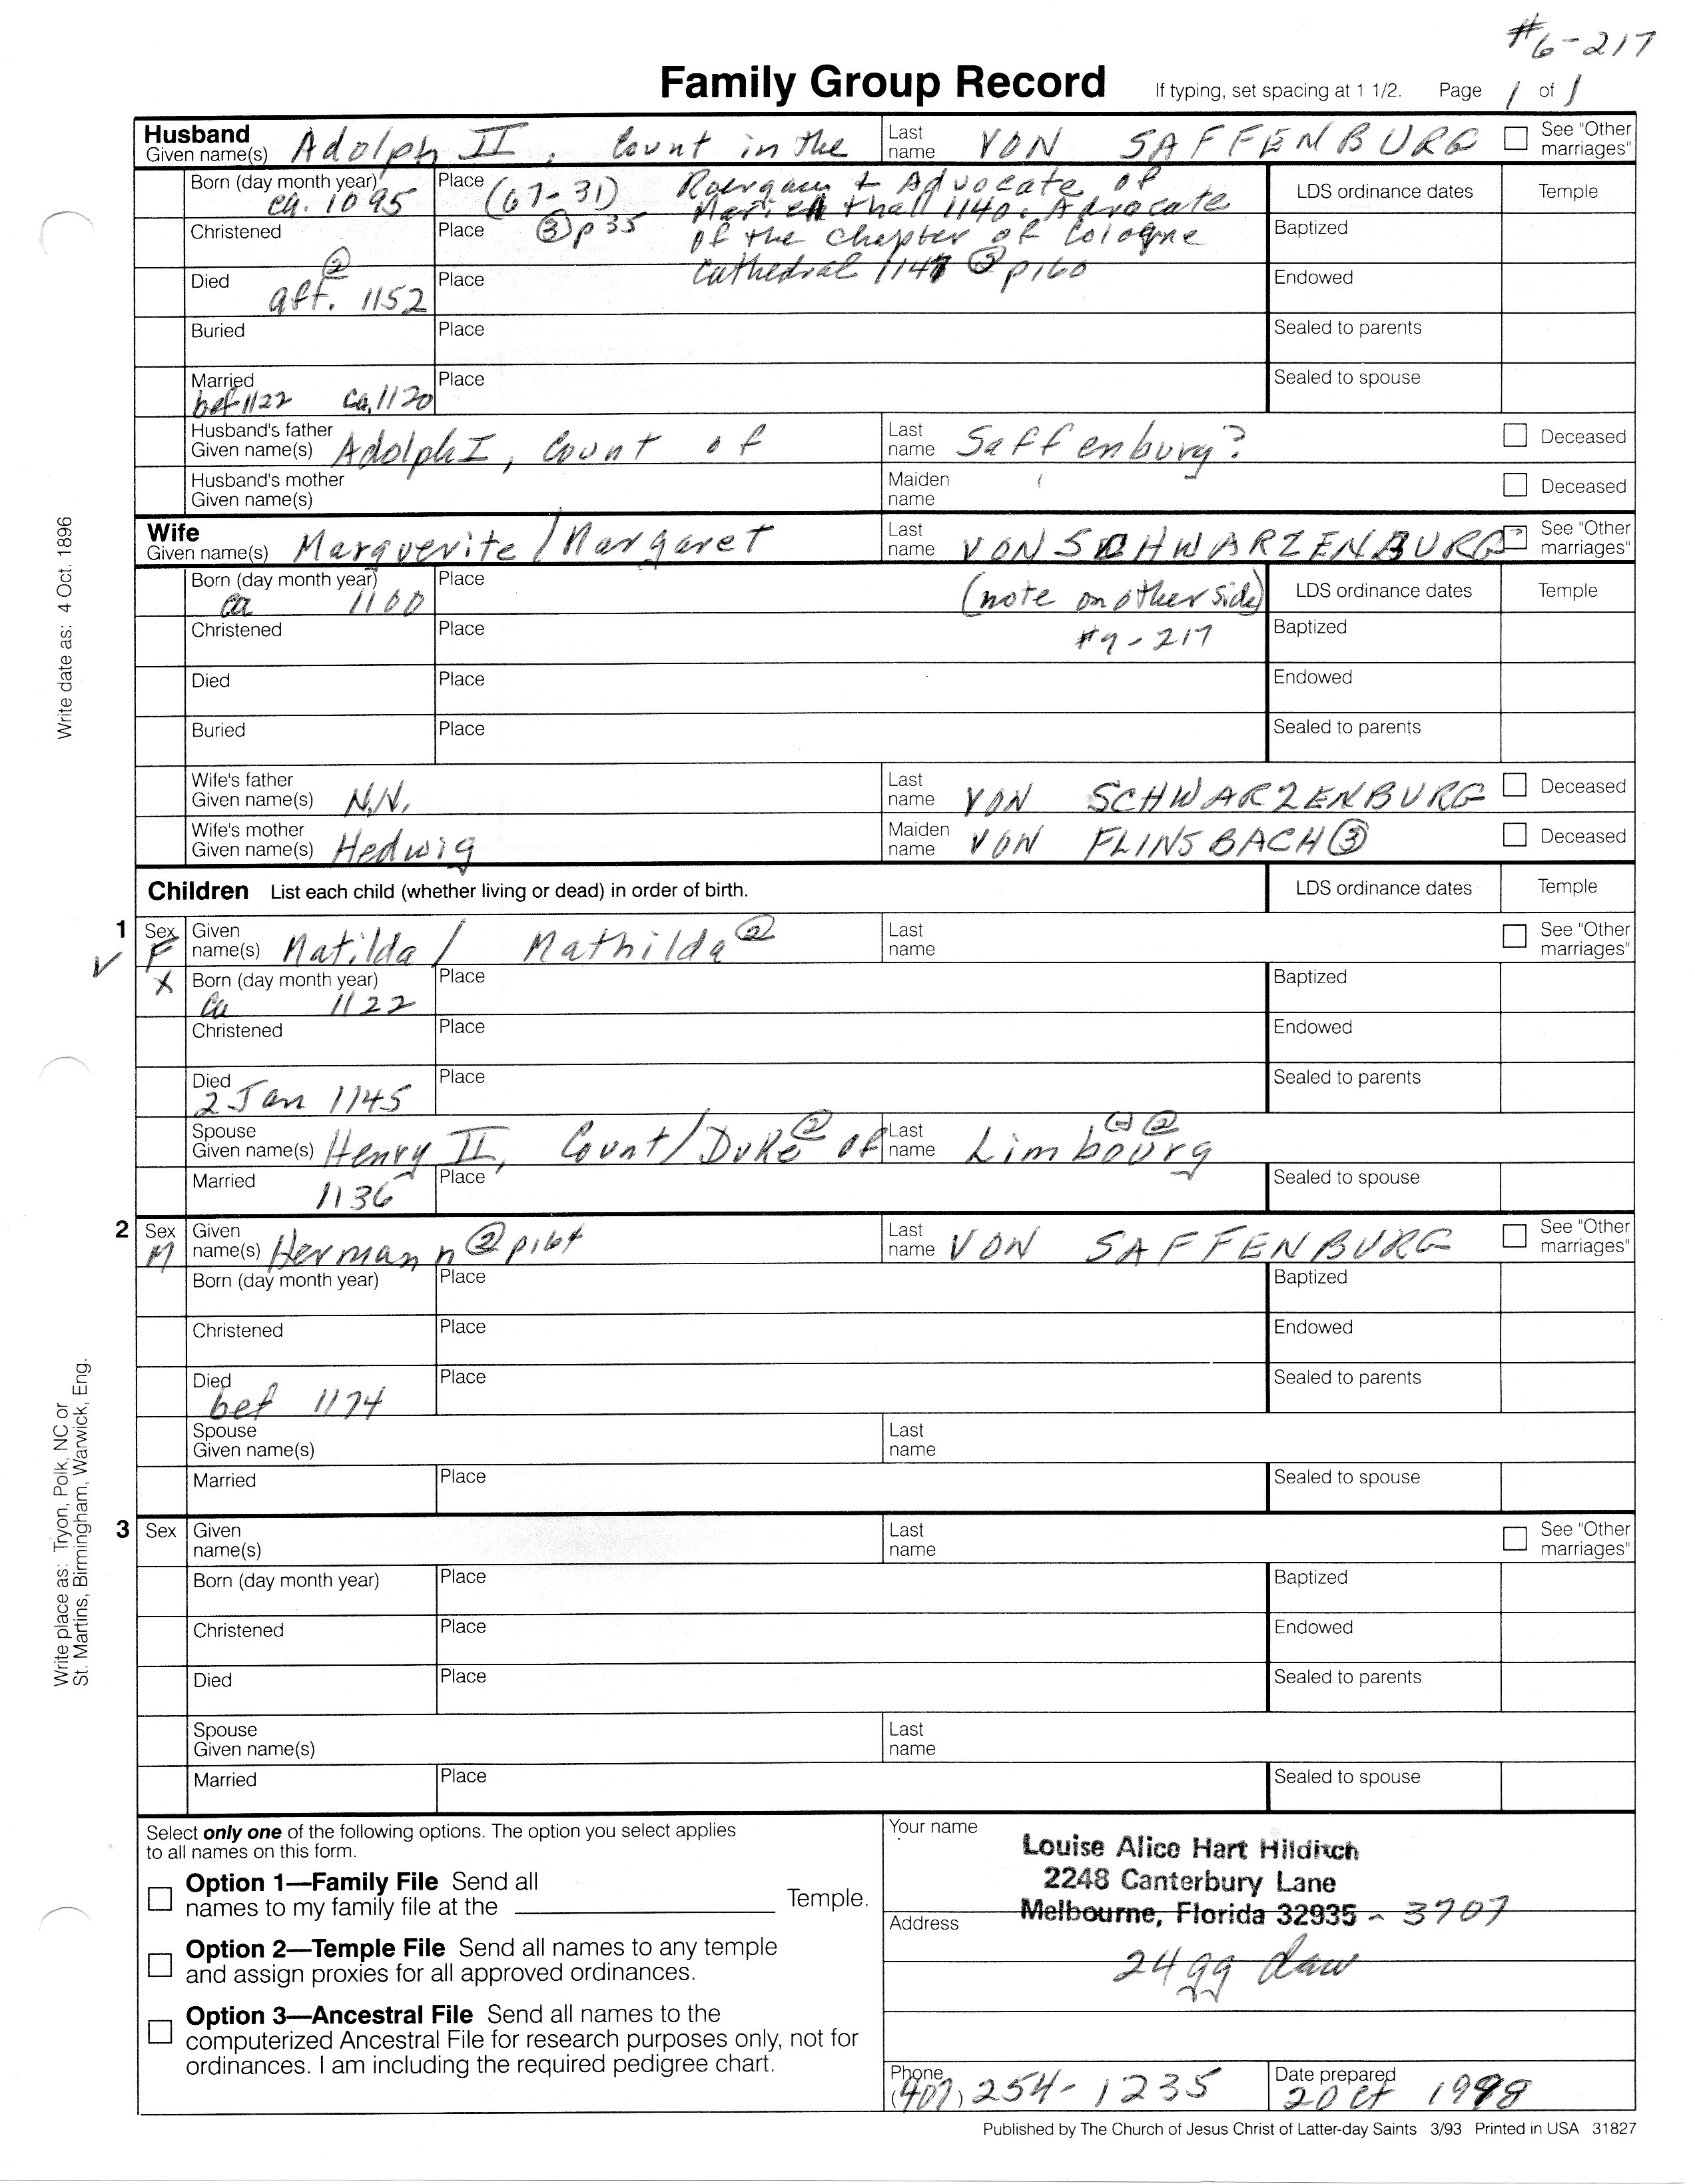 #6-217
Family Group Record If typing, set spacing at 1 1/2. Page 1 of 1
Husband
Given name(s) Adolph II, Count in the Last name VON SAFFENBURG See "Other marriages"
Born (day month year) ca. 1095 Place (67-31) Roergau & Advocate of LDS ordinance dates Temple
Marienthal 1140. Advocate
Christened Place ③p35 of the chapter of Cologne Baptized
Cathedral 1147 ② p160
Died ② aft. 1152 Place Endowed
Buried Place Sealed to parents
Married bef 1122 ca. 1120 Place Sealed to spouse
Husband's father
Given name(s) Adolph I, Count of Last name Saffenburg? Deceased
Husband's mother
Given name(s) Maiden name Deceased
Wife
Given name(s) Marguerite/Margaret Last name VON SCHWARZENBURG See "Other marriages"
Born (day month year) ca 1100 Place (note on other side) LDS ordinance dates Temple
Christened Place #9-217 Baptized
Died Place Endowed
Buried Place Sealed to parents
Wife's father
Given name(s) N.N. Last name VON SCHWARZENBURG Deceased
Wife's mother
Given name(s) Hedwig Maiden name VON FLINSBACH ③ Deceased
Children List each child (whether living or dead) in order of birth. LDS ordinance dates Temple
1 Sex F Given name(s) Matilda / Mathilda ② Last name See "Other marriages"
✓ X Born (day month year) ca 1122 Place Baptized
Christened Place Endowed
Died 2 Jan 1145 Place Sealed to parents
Spouse
Given name(s) Henry II, Count/Duke ② of Last name Limbourg ②
Married 1136 Place Sealed to spouse
2 Sex M Given name(s) Hermann ② p164 Last name VON SAFFENBURG See "Other marriages"
Born (day month year) Place Baptized
Christened Place Endowed
Died bef 1174 Place Sealed to parents
Spouse
Given name(s) Last name
Married Place Sealed to spouse
3 Sex Given name(s) Last name See "Other marriages"
Born (day month year) Place Baptized
Christened Place Endowed
Died Place Sealed to parents
Spouse
Given name(s) Last name
Married Place Sealed to spouse
Write date as: 4 Oct. 1896
Write place as: Tryon, Polk, NC or
St. Martins, Birmingham, Warwick, Eng.
Select only one of the following options. The option you select applies
to all names on this form.
Option 1—Family File Send all
names to my family file at the Temple.
Option 2—Temple File Send all names to any temple
and assign proxies for all approved ordinances.
Option 3—Ancestral File Send all names to the
computerized Ancestral File for research purposes only, not for
ordinances. I am including the required pedigree chart.
Your name Louise Alice Hart Hilditch
2248 Canterbury Lane
Address Melbourne, Florida 32935 - 3707
24 gg daw
Phone (407) 254-1235 Date prepared 2 Oct 1998
Published by The Church of Jesus Christ of Latter-day Saints 3/93 Printed in USA 31827